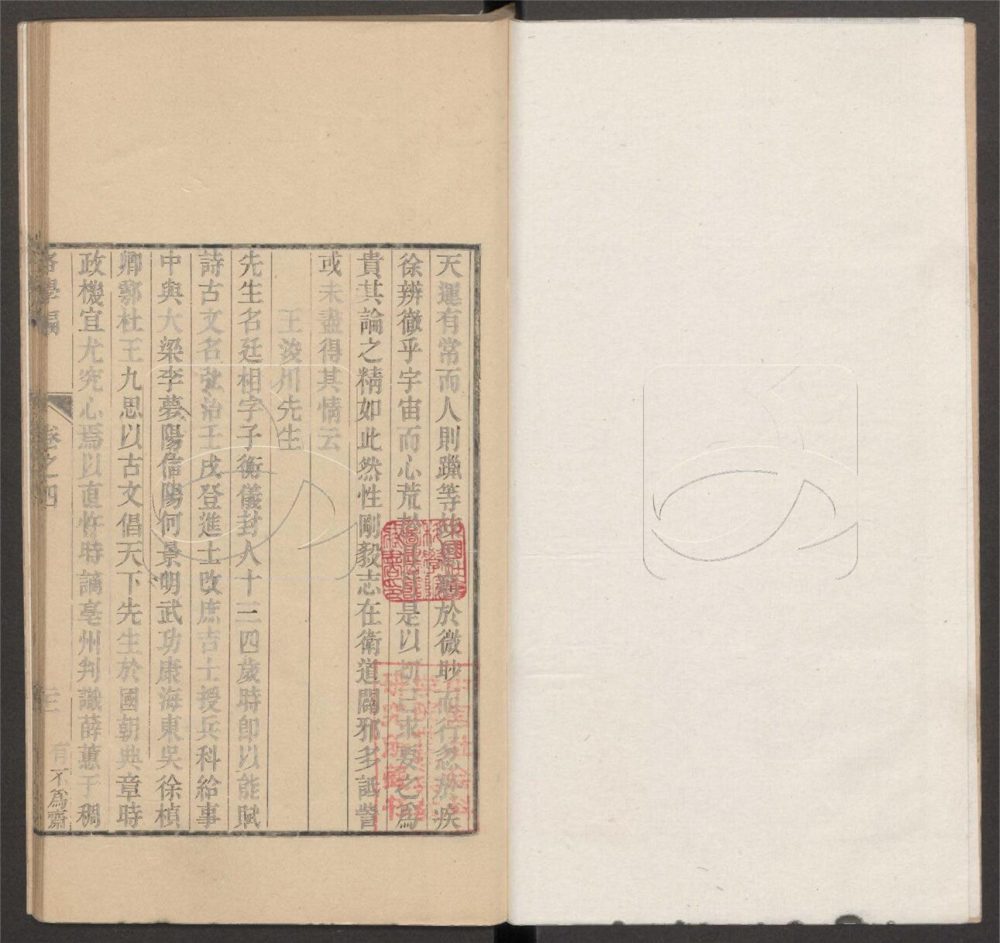 天運有常而人則躐等於微眇而行忽於疾
徐辨徹乎宇宙而心荒是以切己求要之為
貴其論之精如此然性剛毅志在衛道闢邪多詆訾
或未盡得其情云
王浚川先生
先生名廷相字子衡儀封人十三四歲時即以能賦
詩古文名弘治壬戌登進士改庶吉士授兵科給事
中與大梁李夢陽信陽何景明武功康海東吳徐楨
卿鄠杜王九思以古文倡天下先生於國朝典章時
政機宜尤究心焉以直忤時謫亳州判識薛蕙于稠
洛學編
卷之四
三
有不為齋